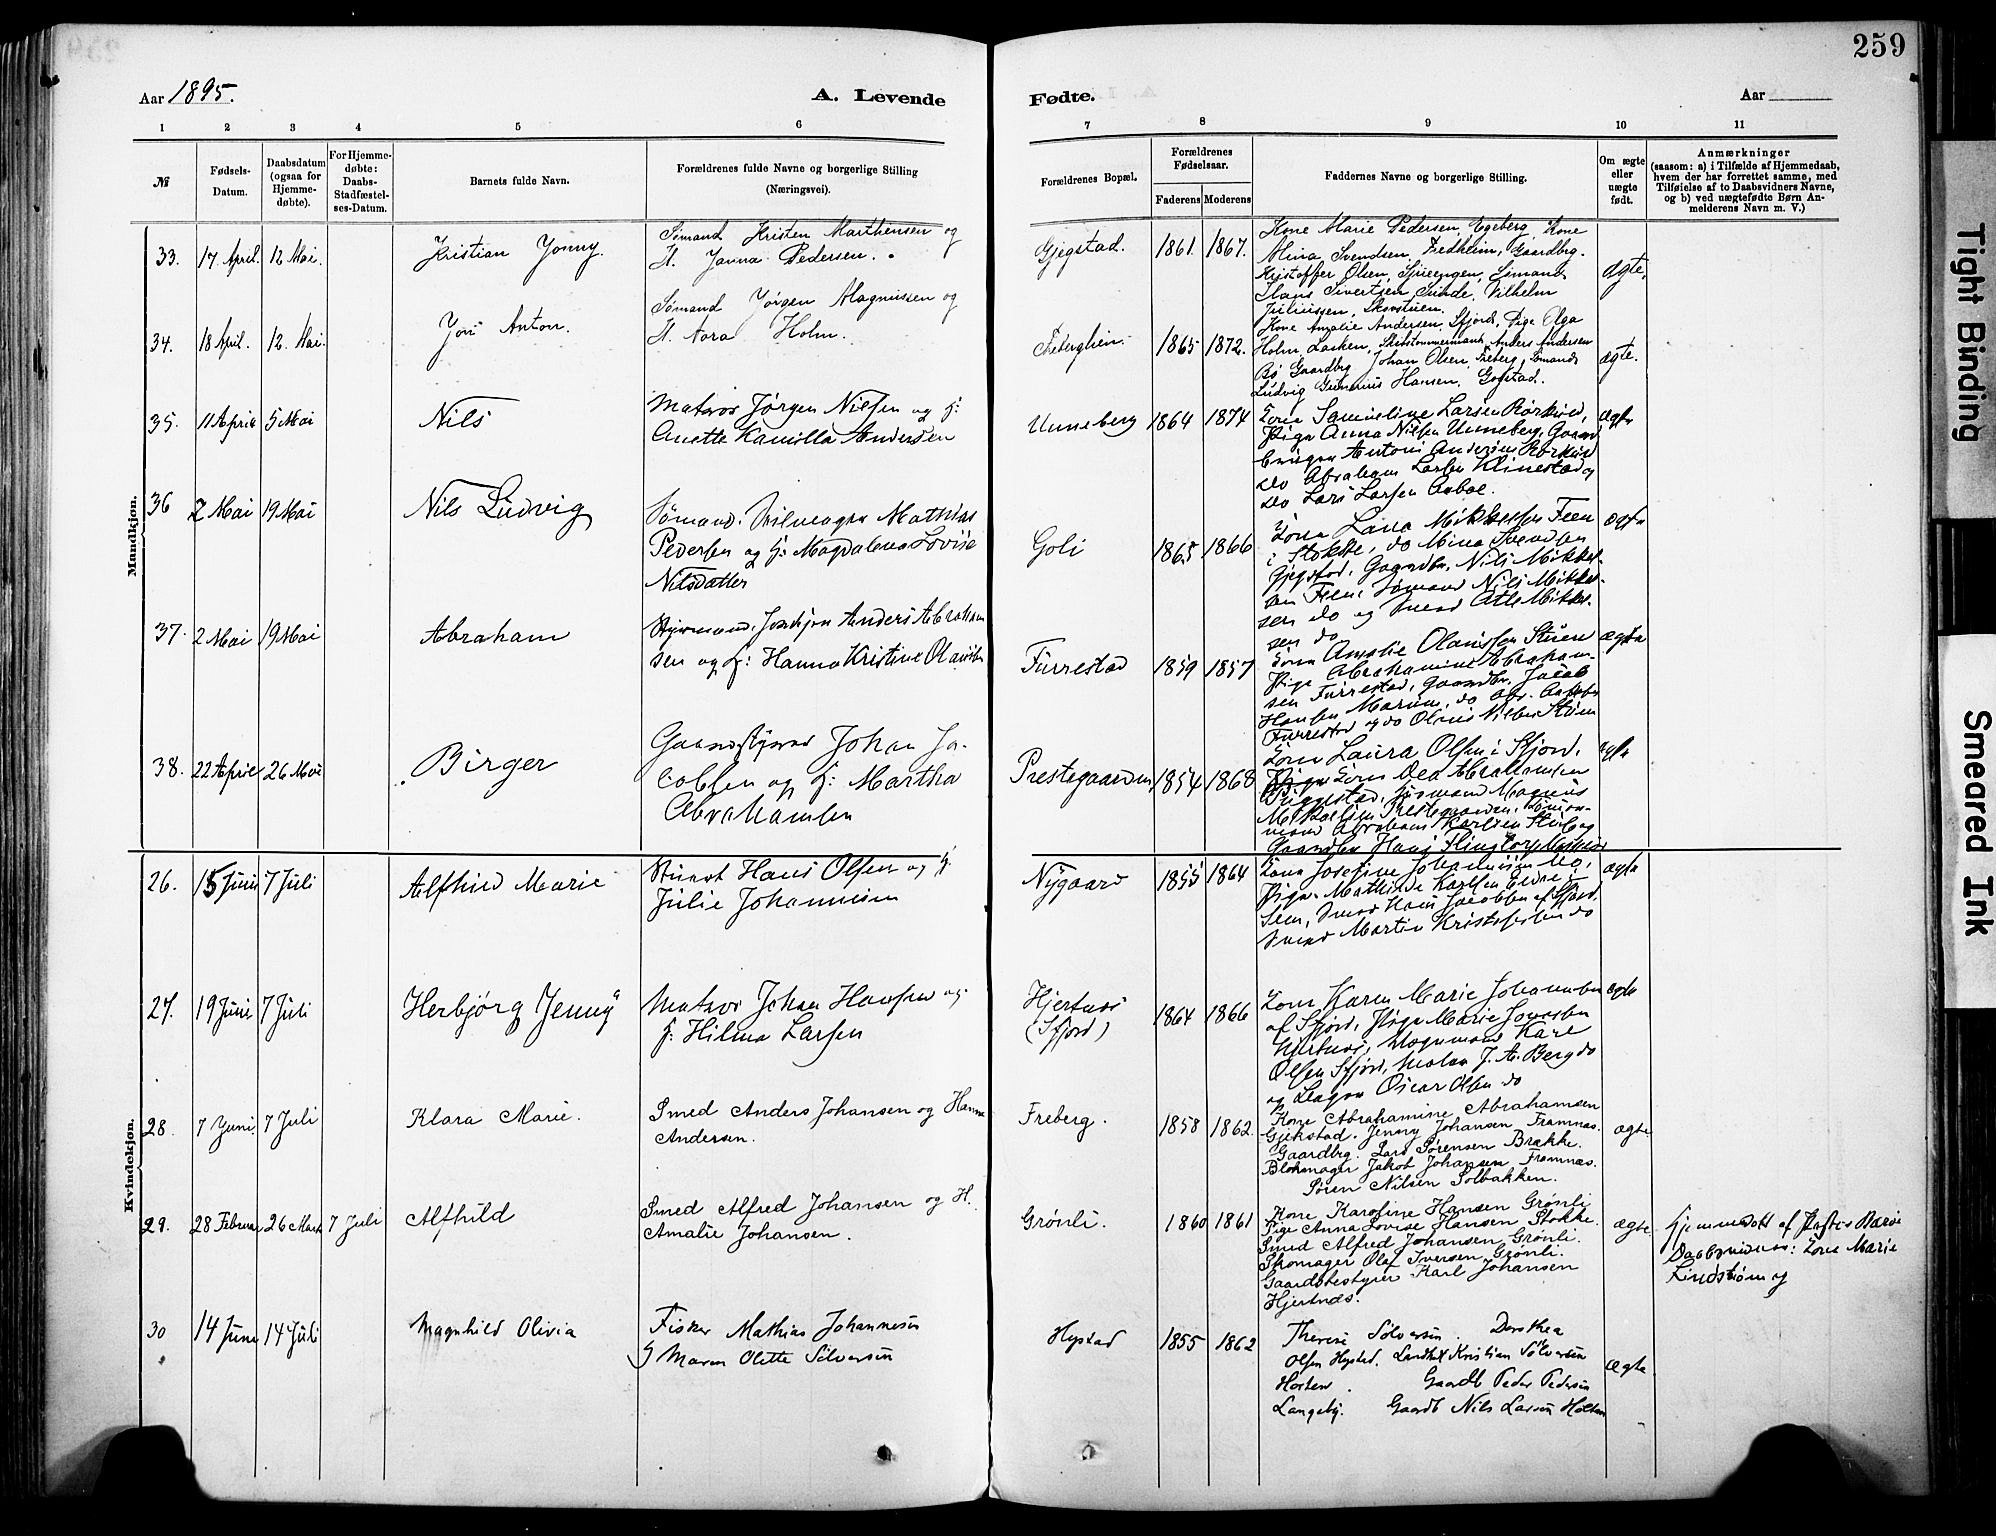 259
Aar 1895.
A. Levende
Fødte.
Aar
1 2 3 4 5 6
7 8 9 10 11
№
Fødsels-
Datum.
Daabsdatum
(ogsaa for
Hjemme-
døbte).
For Hjemme-
døbte:
Daabs-
Stadfæstel-
ses-Datum.
Barnets fulde Navn.
Forældrenes fulde Navne og borgerlige Stilling
(Næringsvei).
Forældrenes Bopæl.
Forældrenes
Fødselsaar.
Faderens Moderens
Faddernes Navne og borgerlige Stilling.
Om ægte
eller
uægte
født.
Anmærkninger
(saasom: a) i Tilfælde af Hjemmedaab,
hvem der har forrettet samme, med
Tilføielse af to Daabsvidners Navne,
og b) ved uægtefødte Børn An-
melderens Navn m. V.)
Mandkjøn.
33. 17 April. 12 Mai.
Kristian Jonny.
Sømand Kristen Marthinsen og
H. Janna Pedersen.
Gjegstad.
1861. 1867.
Kone Marie Pedersen, Egeberg Kone
Mina Svendsen, Fredheim, Gaardbrg.
Kristoffer Olsen, Sømand
Hans Sivertsen Sunde, Vilhelm
Juliussen, Skovstuen.
ægte.
34. 18 April. 12. Mai.
Jon Anton.
Sømand Jørgen Magnussen og
H. Nora Holm.
Freberglien.
1865 1872.
Kone Amalie Andersen, Sfjord, Pige Olga
Holm, Lasken, Skibstømmermand Anders Andersen
Bø Gaardbrg Johan Olsen, Freberg, Sømand
Ludvig Hansen, Gokstad.
ægte.
35. 11 April 5 Mai
Nils
Matros Jørgen Nilsen og H:
Anette Kamilla Andersen
Unneberg
1864 1874
Kone Samueline Larsen Rørkold,
Pige Anna Nilsen Unneberg, Gaard
bruger Anton Andersen Rørkold
do Abraham Larsen Klinestad og
do Lars Larsen Aabol.
ægte
36 2 Mai 19 Mai
Nils Ludvig
Sømand, Mathias
Pedersen og H: Magdalena Lovise
Nilsdatter
Goli
1865 1866
Kone Lina Mikkelsen Feen
i Stokke, do Mina Svendsen
Gjegstad, Gaardbr. Nils Mikkel-
sen Feen, Sømand Nils Mikkel-
sen do og Atle Mikkel-
sen do
ægte
37. 2 Mai 19 Mai
Abraham
Styrmand, Anders Abraham
sen og H: Hanna Kristine Olausen
Furrestad
1859 1857
Kone Amalie Olaussen Stuen
Pige Abrahamine Abraham-
sen Furrestad, Gaardbr. Jacob
Hansen Marum, do Abr.
Furrestad og do Olaus Nilsen Stuen
ægte
38. 22 April 26 Mai
Birger
Gaardstyrer Johan Ja-
cobsen og H: Martha
Abrahamsen
Prestegaarden
1854 1868
Kone Laura Olsen i Sfjord,
Kone Olea Abrahamsen
Sømand Magnus
Prestegaarden,
mand Abraham Karlsen
Gaardbr Hans
ægte
Kvindekjøn.
26. 15 Juni 7 Juli
Alfhild Marie
Stuert Hans Olsen og H.
Julie Johannesen
Nygaard
1855 1864
Kone Josefine Johannesen
Pige Mathilde Karlsen Eidre i
Sem, Hans Jacobsen af Sfjord,
Martin Kristofersen do
ægte
27. 19 Juni 7 Juli
Herbjørg Jenny
Matros Johan Hansen og
H: Hilma Larsen
Hjertnæs
(Sfjord)
1864 1866
Kone Karen Marie Johannesen
af Sfjord, Pige Marie
Hjertnæs, Vognmand Karl
Olsen Sfjord, J. A. Berg do
og Oscar Olsen do
ægte
28. 7 Juni. 7 Juli
Klara Marie.
Smed Anders Johansen og Hanna
Andersen.
Freberg.
1858 1862
Kone Abrahamine Abrahamsen
Gjekstad. Jenny Johansen Framnæs.
Gaardbrg. Lars Sørensen Brække.
Blokmager Jakob Johansen Framnæs.
Søren Nilsen Solbakken.
ægte
29. 28 Februar 26 Marts 7 Juli
Alfhild
Smed Alfred Johansen og H.
Amalie Johansen.
Grønli.
1860 1861
Kone Karoline Hansen Grønli
Pige Anna Lovise Hansen Stokke.
Smed Alfred Johansen Grønli.
Skomager Olaf Iversen Grønli.
Gaardbestyrer Karl Johansen
Hjertnæs.
ægte
Hjemmedøbt af
Daabsvidner: Kone Marie
Lindstrøm og
30 14 Juni 14 Juli
Magnhild Olivia
Fisker Mathias Johannesen
H Maren Olette Sølversen
Hystad
1855 1862
Therese Sølversen. Dorthea
Olsen Hystad. Kristian Sølversen
Horten. Gaardb Peder Pedersen
Langeby. Gaardb Nils Larsen Holtan
ægte
Tight Binding
Smeared Ink